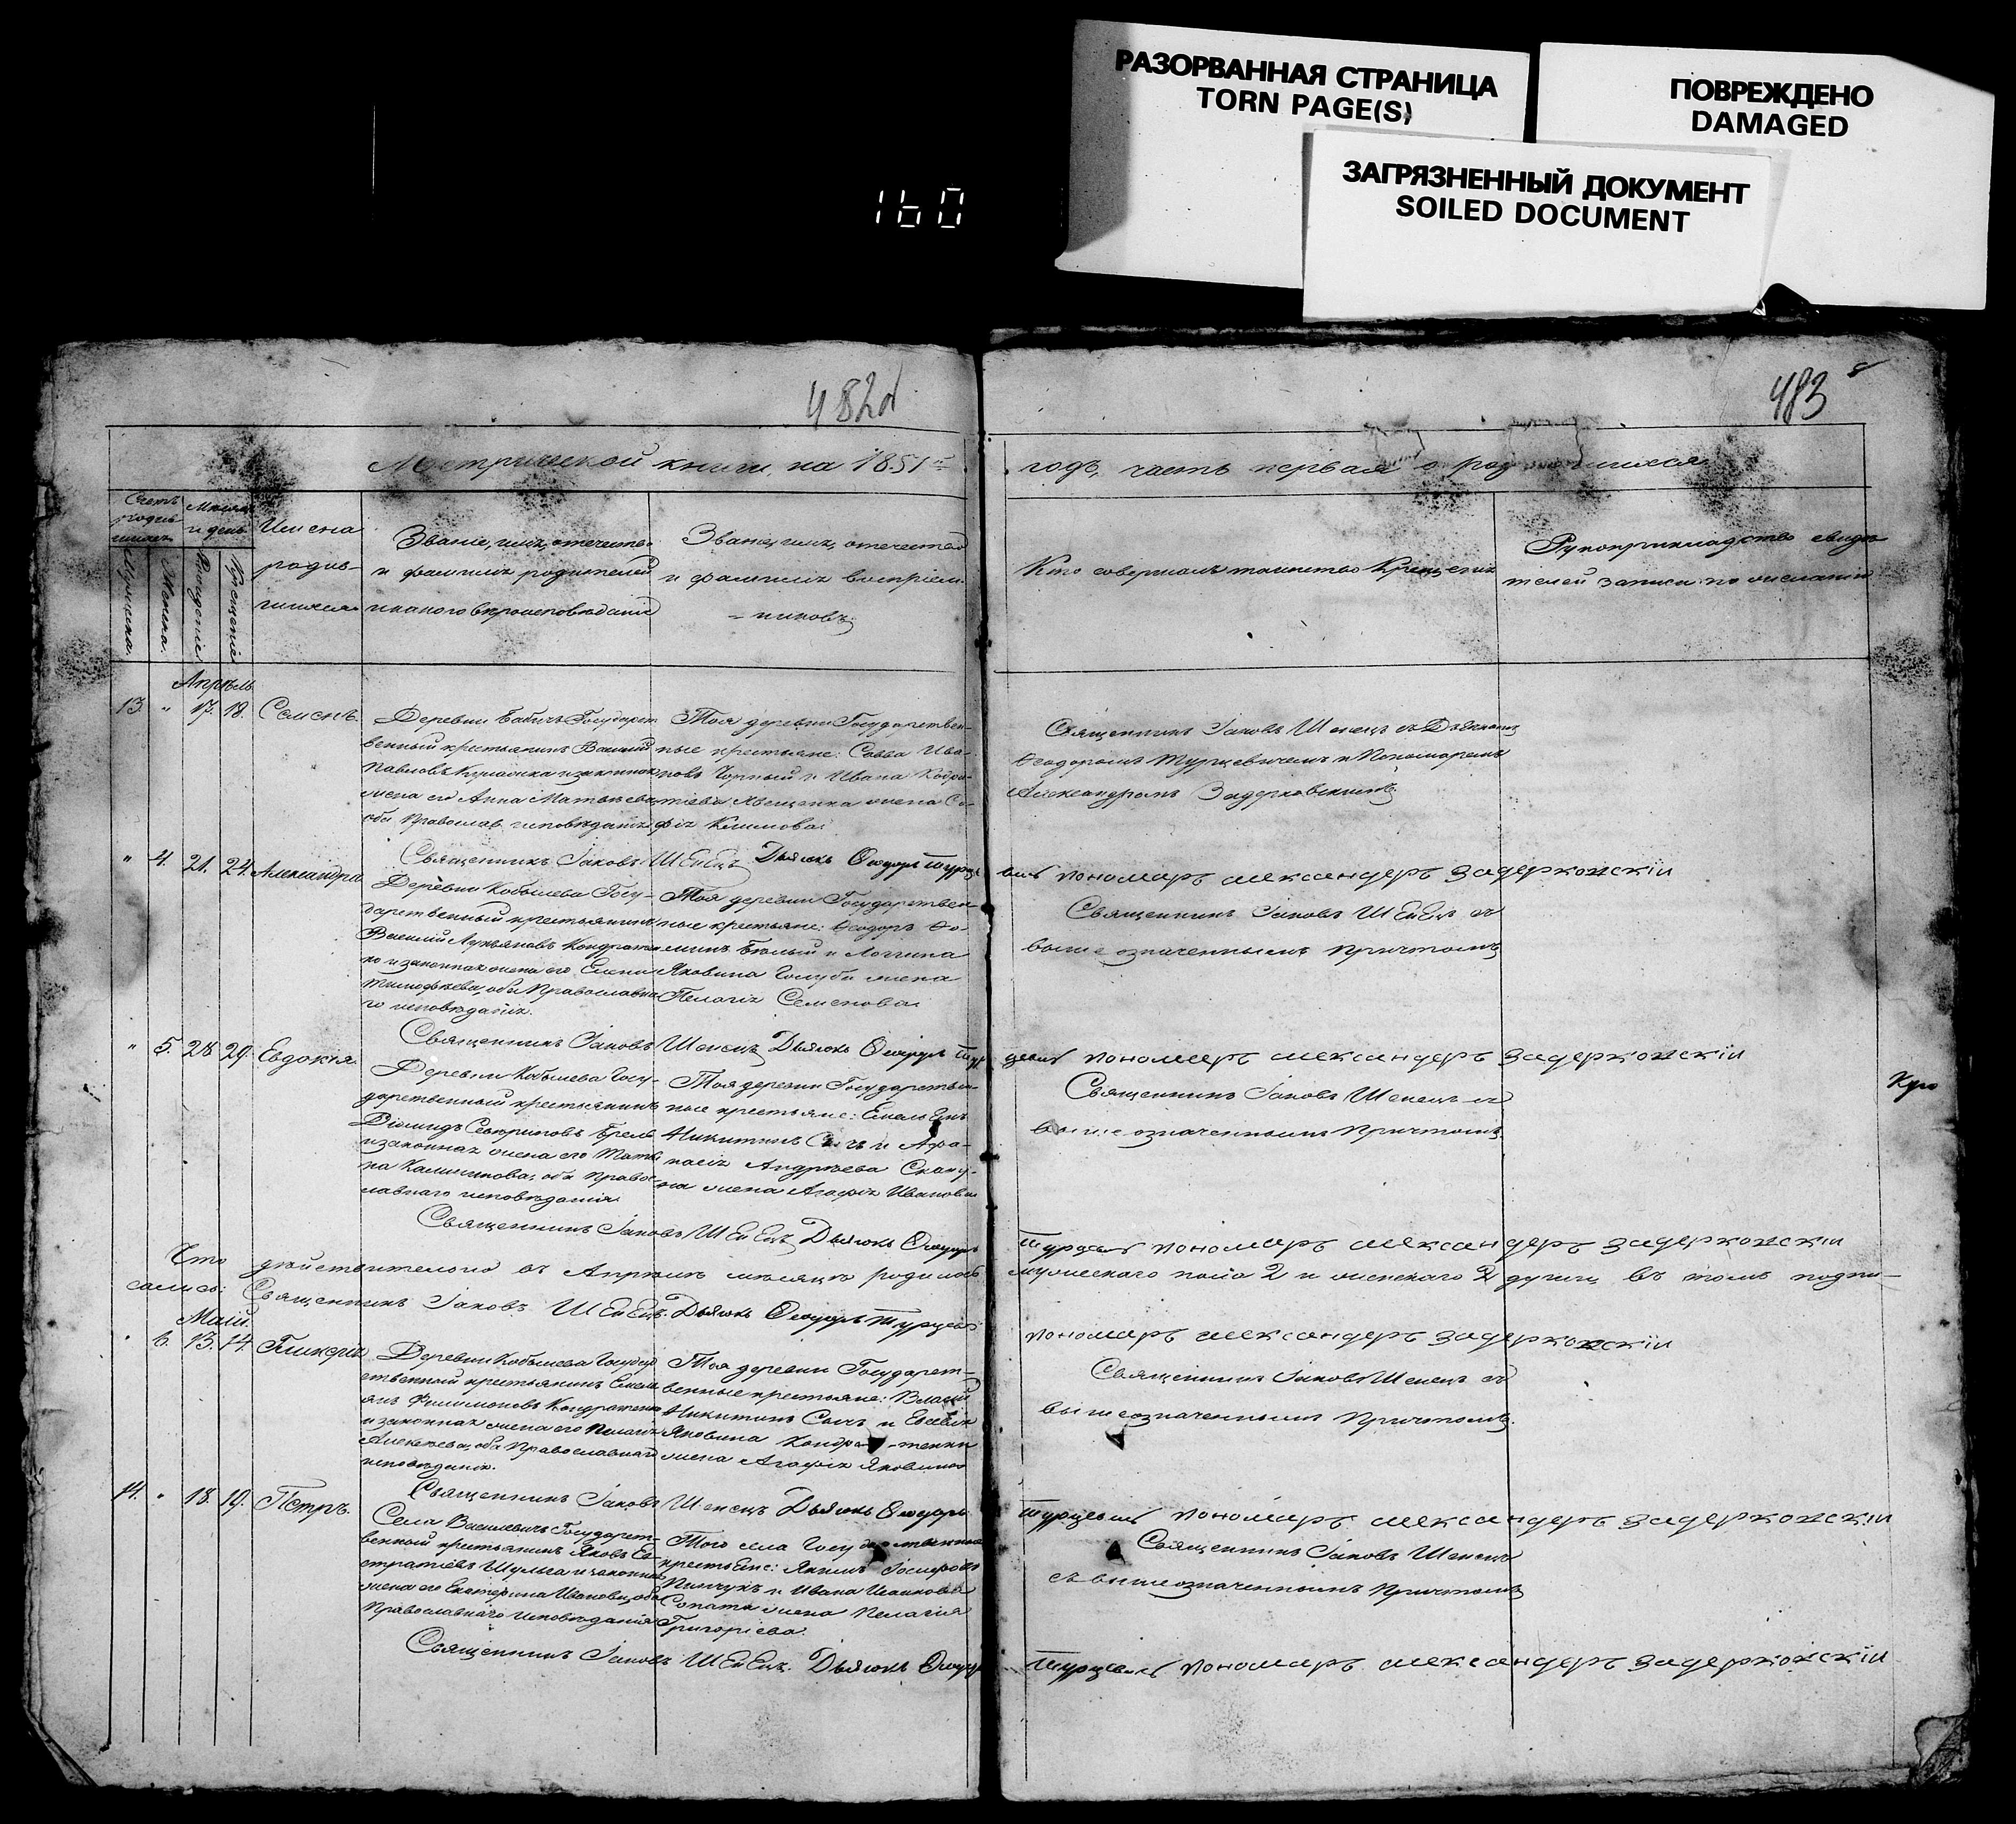 РАЗОРВАННАЯ СТРАНИЦА
TORN PAGE(S)
ПОВРЕЖДЕНО
DAMAGED
ЗАГРЯЗНЕННЫЙ ДОКУМЕНТ
SOILED DOCUMENT
160
482
483
Метрической книги, на 1851й
годъ, часть первая о родившихся
Счетъ
родив
шихся
Мѣсяцъ
и день
Мужеска.
Женска.
Рожденіе
Крещеніе
Имена
родив-
шихся
Званіе, имя, отечество
и фамилія родителей
и какого вѣроисповѣданія
Званіе, имя, отечество
и фамилія воспріем
- никовъ
Кто совершалъ таинство Крещенія
Рукоприкладство свидѣ
телей записи по желанію
Апрѣль
13. " 17. 18. Семенъ.
Деревни Государст
венный крестьянинъ Василій
Павловъ и законная
жена его Анна Матвѣева
оба Православ. исповѣданія
Тоя деревни Государствен-
ные крестьяне: Савва Ива-
новъ Чорный и Ивана
жена Со-
фія Климова.
Священникъ Іаковъ Шенецъ съ Дьячкомъ
Ѳеодоромъ Турцевичемъ и Пономаремъ
Александромъ Задерковскимъ
Священникъ Іаковъ Шенецъ Дьячокъ Ѳеодоръ Турце
вичъ пономаръ александеръ задерковскіи
" 4. 21. 24. Александра
Деревни Кобылева Госу-
дарственный крестьянинъ
Василій Лукьяновъ Кондратен
ко и законная жена его Елена
Тимофѣева, оба Православна
го исповѣданія.
Тоя деревни Государствен-
ные крестьяне: Ѳеодоръ Ѳо-
минъ Бѣлый и Логгина
Яковина Голуба жена
Пелагія Семенова
Священникъ Іаковъ Шенецъ съ
вышеозначеннымъ Причтомъ
Священникъ Іаковъ Шенецъ Дьячокъ Ѳеодоръ Тур
цевичъ пономаръ александеръ задерковскіи
" 5. 28. 29. Евдокія
Деревни Кобылева Госу-
дарственный крестьянинъ
Діомидъ
и законная жена его Татья
на Калиникова, оба Правос
лавнаго исповѣданія
Тоя деревни Государствен
ные крестьяне: Емельянъ
Никитинъ и Афа-
насія Андрѣева
жена Агафія Иванова
Священникъ Іаковъ Шенецъ съ
вышеозначеннымъ Причтомъ.
Священникъ Іаковъ Шенецъ Дьячокъ Ѳеодоръ
Турцевичъ пономаръ александеръ задерковскіи
Что дѣйствительно въ Апрѣлѣ мѣсяцѣ родилось
мужескаго пола 2 и женскаго 2 души въ томъ подпи-
сались: Священникъ Іаковъ Шенецъ. Дьячокъ Ѳеодоръ Турцевичъ
пономаръ александеръ задерковскіи
Май.
" 6. 13. 14. Гликерія
Деревни Кобылева Государ
ственный крестьянинъ Емель
янъ Филимоновъ Кондратенко
и законная жена его Пелагія
Алексѣева, оба Православнаго
исповѣданія.
Тоя деревни Государст-
венные крестьяне: Власій
Никитинъ Сычъ и Евсевія
Яковина Кондра-тенки
жена Агафія Яковина
Священникъ Іаковъ Шенецъ съ
вышеозначеннымъ Причтомъ.
Священникъ Іаковъ Шенецъ Дьячокъ Ѳеодоръ
Турцевичъ пономаръ александеръ задерковскіи
14. " 18. 19. Петръ.
Села Василевичъ Государст-
венный крестьянинъ Яковъ Ев-
стратіевъ Шульга и законная
жена его Екатерина Иванова, оба
Православнаго исповѣданія
Того села Государственные
крестьяне: Якимъ Іосифовъ
Пинчукъ и Ивана
жена Пелагія
Григоріева.
Священникъ Іаковъ Шенецъ
съ вышеозначеннымъ Причтомъ
Священникъ Іаковъ Шенецъ. Дьячокъ Ѳеодоръ
Турцевичъ пономаръ александеръ задерковскіи